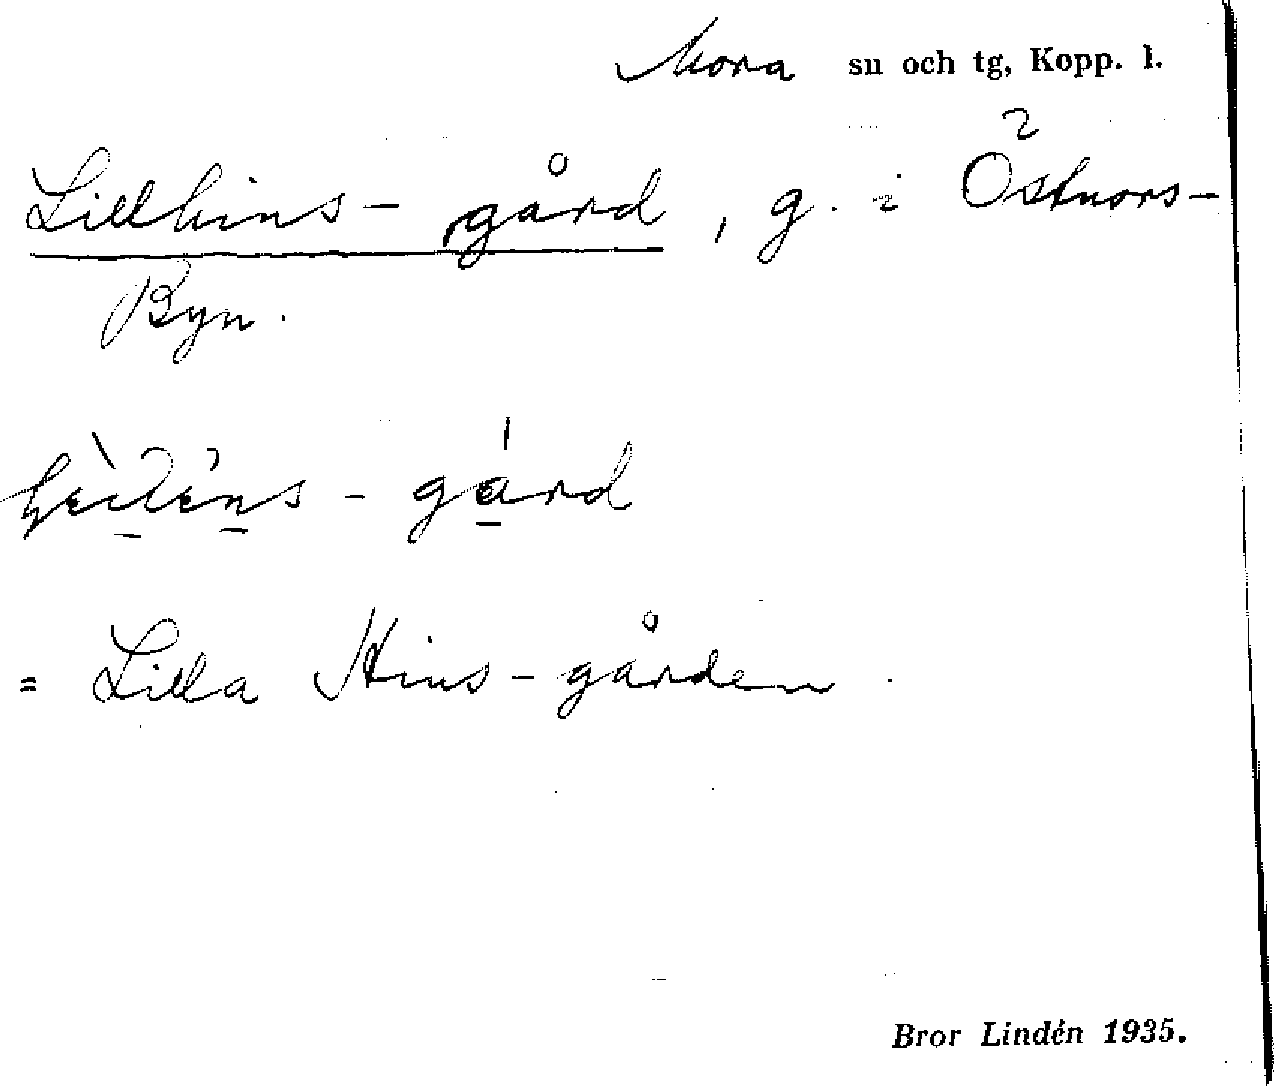 Mora sn och tg, Kopp. l.
Lillhins-gård, g. i Östnors-
Byn.
= Lilla Hins-gården.
Bror Lindén 1935.